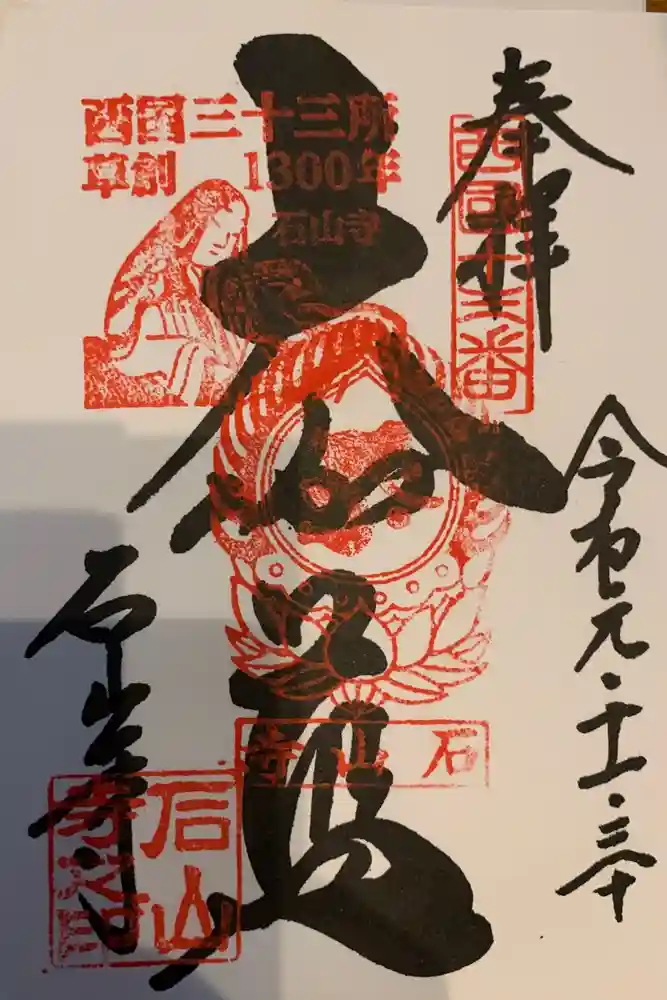 奉拝
西国十三番
西国三十三所
草創 1300年
石山寺
令和元・十一・三十
石山寺
石山寺
石山
寺